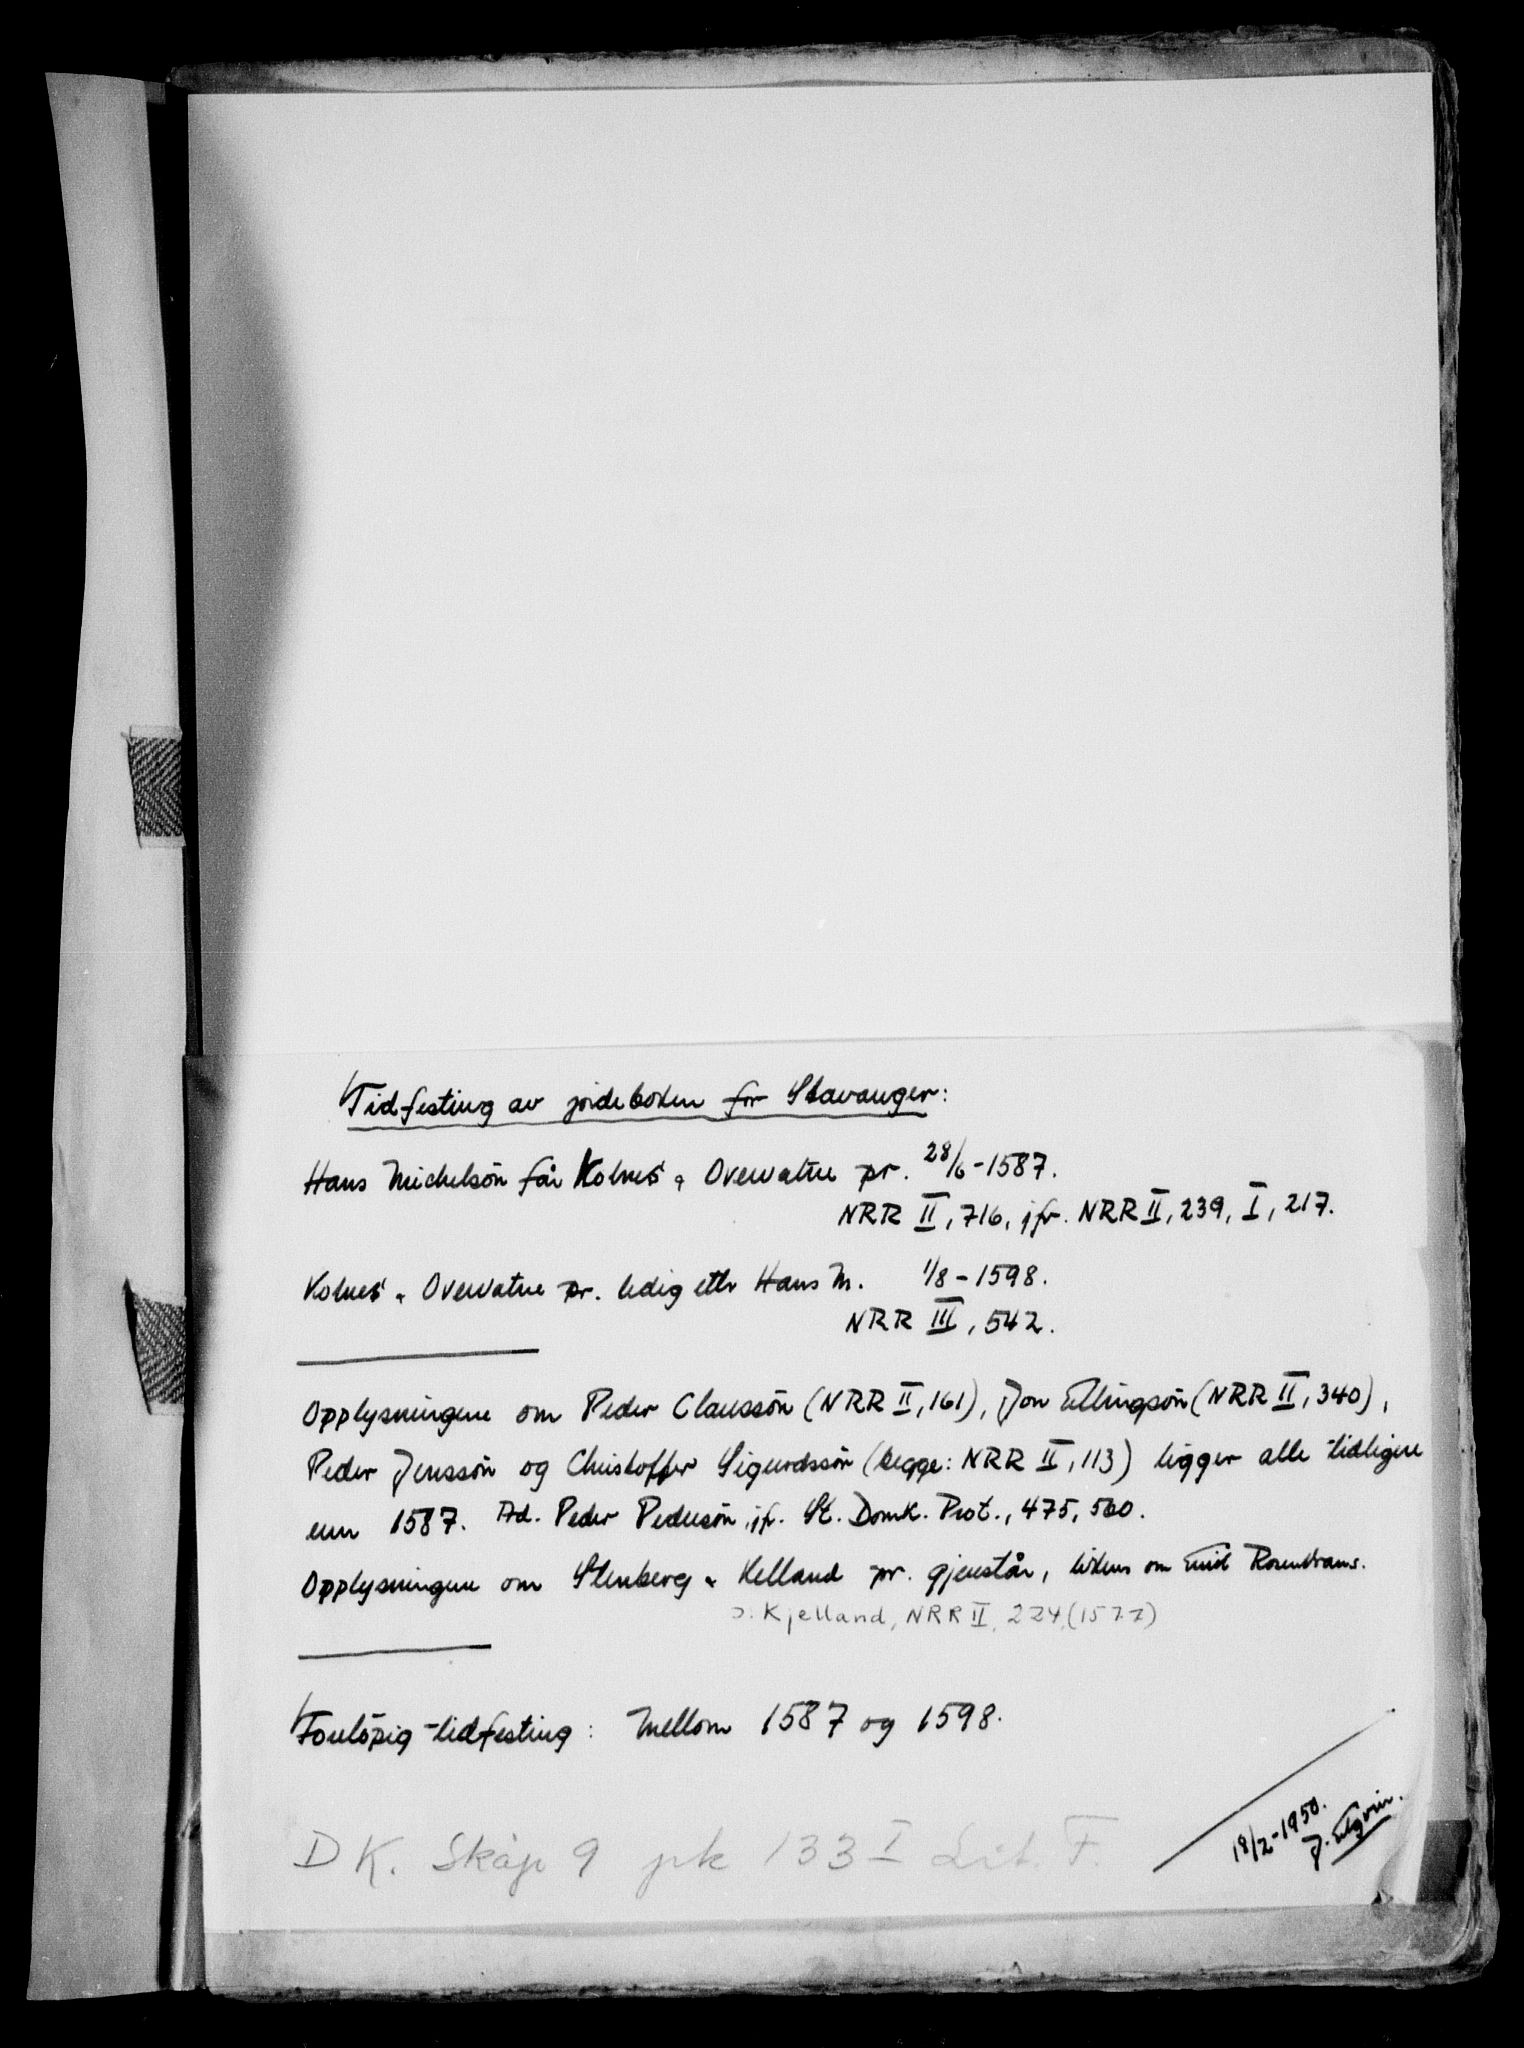 Tidfesting av jordeboken for Stavanger:
Hans Michelsön får Kolnes & Overvatne pr. 28/6-1587.
NRR II, 716, jfr. NRR II, 239, I, 217.
Kolnes & Overvatne pr. ledig ettr Hans M. 1/8-1598.
NRR III, 542.
Opplysningene om Peder Claussön (NRR II, 161), Jon Ellingsön (NRR II, 340),
Peder Jenssön og Christoffer Sigurdssön (begge: NRR II, 113) ligger alle tidligere
enn 1587. Ad. Peder Pedersön, jfr. St. Domk. Prot., 475, 560.
Opplysningene om Stenberg & Helland pr. gjenstår, likens om Rosenkrans.
ɔ: Kjelland, NRR II, 224, (1577)
Forelöpig tidfesting: Mellom 1587 og 1598.
18/2-1950.
DK. Skap 9 pk 133 I Lit. F.